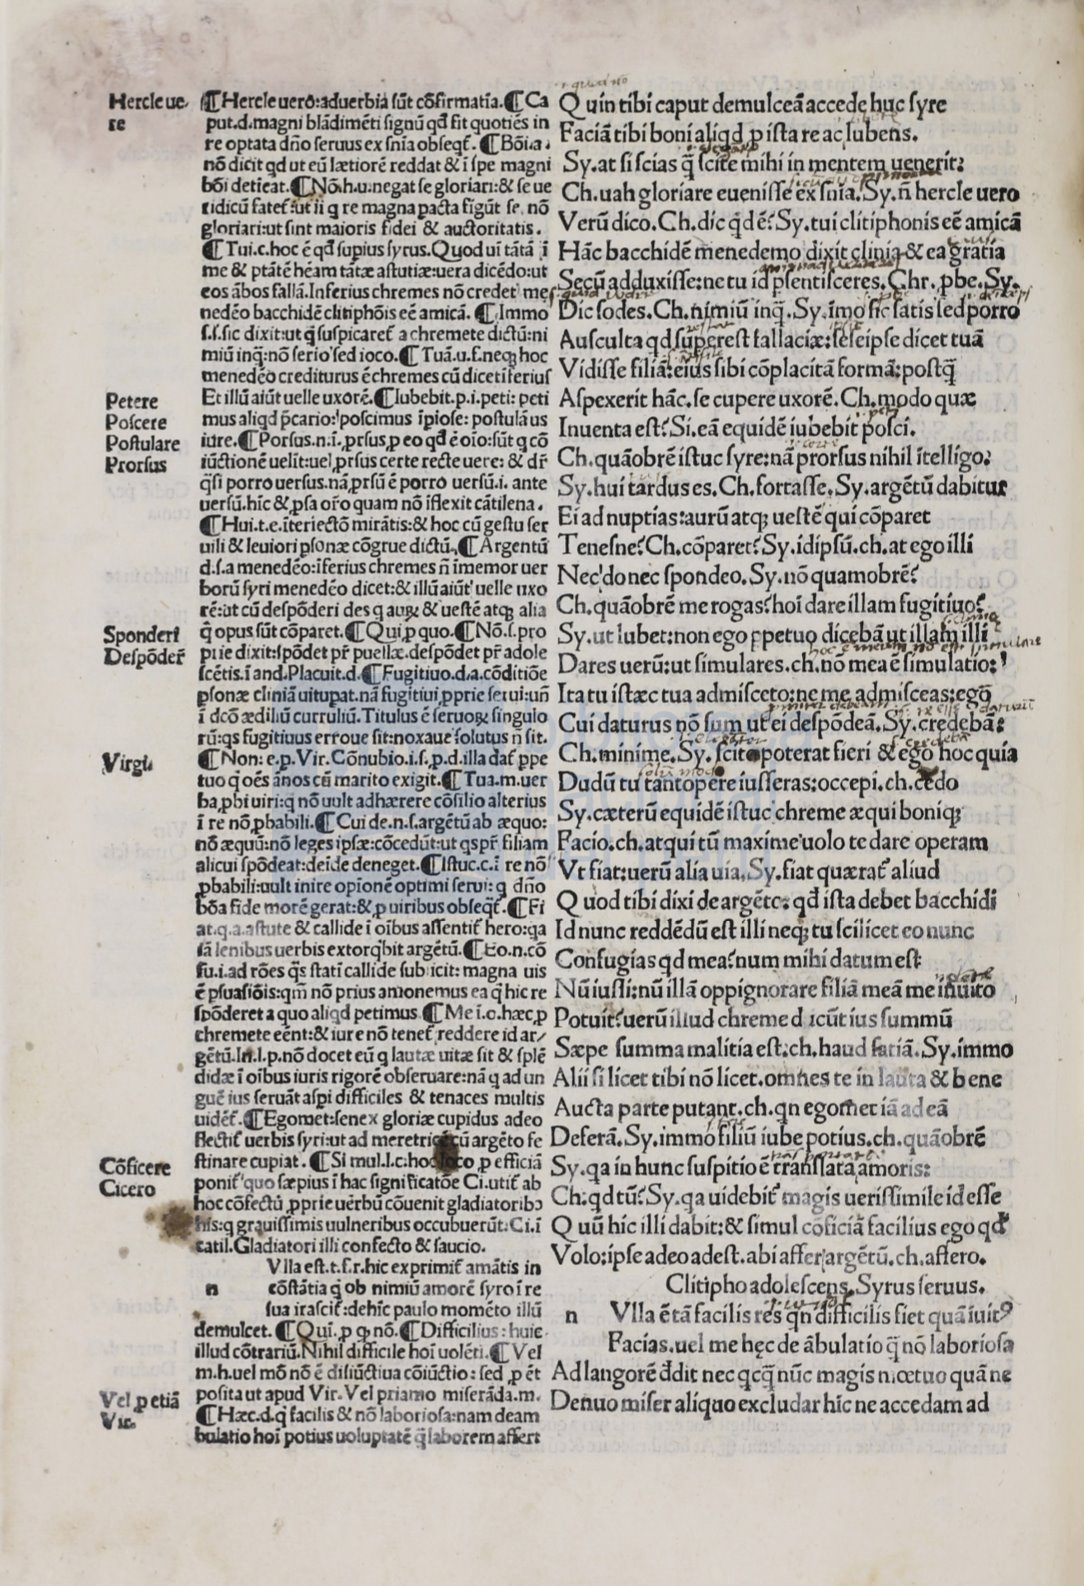 Hercle ue-
re
Petere
Poscere
Postulare
Prorsus
Sponderi
Despōder̄
Virgi.
Cōficere
Cicero
Vel ꝓ etiā
Vir.
¶Hercle uero:aduerbia sūt cōfirmatīa.¶Ca
put.d.magni blādimēti signū qđ fit quotiēs in
re optata dño seruus ex sñia obseqt̄. ¶Bōi.a.
nō dicit qđ ut eū lætiorē reddat & ī spe magni
bōi detieat.¶Nō.h.u:negat se gloriari:& se ue
ridicū fatet̄:ut ii q re magna pacta figūt se. nō
gloriari:ut sint maioris fidei & auctoritatis.
¶Tui.c.hoc ē qđ supius syrus.Quod ui tātā ī
me & ptātē hēam tātæ astutiæ:uera dicēdo:ut
eos ābos fallā.Inferius chremes nō credet me
nedēo bacchidē clitiphōis eē amicā. ¶Immo
s.s.sic dixit:ut q̄ suspicaret̄ a chremete dictū:ni
miū inq̄:nō serio sed ioco.¶Tuā.u.f.neqꝫ hoc
menedēo crediturus ē chremes cū dicet iferius
Et illū aiūt uelle uxorē.¶Iubebit.p.i.peti: peti
mus aliqd p̄cario:poscimus īpiose: postulā us
iure.¶Porsus.n.ī.ꝓrsus.ꝓ eo qđ ē oīo:sūt q cō
iūctionē uelīt:uel ꝓrsus certe recte uere: & dr̄
q̄si porro uersus.nā ꝓrsū ē porro uersū.i. ante
uersū.hic & ꝓsa oro quam nō iflexit cātilena.
¶Hui.t.e.īteriectō mirātis:& hoc cū gestu ser
uili & leuiori psonæ cōgrue dictū.¶Argentū
d.s.a menedēo:iferius chremes ñ imemor uer
borū syri menedēo dicet:& illū aiūt uelle uxo
rē:ut cū despōderi des q auꝝ & uestē atqꝫ alia
q̄ opus sūt cōparet.¶Qui.ꝓ quo.¶Nō.s.pro
prie dixit:spōdet pr̄ puellæ.despōdet pr̄ adole
scētis.ī and.Placuit.d.¶Fugitiuo.d.a.cōditiōe
psonæ cliniā uitupat.nā fugitiui ꝓprie serui:un̄
ī dcō ædiliū curruliū.Titulus ē seruoꝝ singulo
rū:qs fugitiuus erroue sit:noxaue solutus ñ sit.
¶Non: e.p. Vir. Cōnubio.i.s.p.d.illa dat̄ ppe
tuo q oēs ānos cū marito exigit.¶Tua.m.uer
ba.pbi uiri:q nō uult adhærere cōsilio alterius
ī re nō ꝓbabili.¶Cui de.n.s.argētū ab æquo:
nō æquū:nō leges ipsæ:cōcedūt:ut qspr̄ filiam
alicui spōdeat:deide deneget.¶Istuc.c.ī re nō
ꝓbabili:uult inire opionē optimi serui: q dño
bōa fide morē gerat:& ꝓ uiribus obseqt̄.¶Fi
at.q.a.astute & callide ī oībus assentit̄ hero:qa
iā lenibus uerbis extorqbit argētū.¶Eo.n.cō
fu.i.ad rōes qs statī callide sub icit: magna uis
ē psuasiōis:qm̄ nō prius amonemus ea q̄ hic re
spōderet a quo aliqd petimus.¶Me ī.c.hæc.ꝓ
chremete eēnt:& iure nō tenet̄ reddere id ar-
gētū.In.l.p.nō docet eū q lautæ uitæ sit & splē
didæ ī oībus iuris rigorē obseruare:nā q ad un
guē ius seruāt aspi difficiles & tenaces multis
uidēt̄.¶Egomet:senex gloriæ cupidus adeo
flectit̄ uerbis syri:ut ad meretricē cū argēto fe
stinare cupiat.¶Si mul.l.c.hoc loco ꝓ efficiā
ponit̄ quo sæpius ī hac significatōe Ci.utit̄ ab
hoc cōfectū ꝓprie uerbū cōuenit gladiatoribꝫ
his:q grauissimis uulneribus occubuerūt:Ci.ī
catil.Gladiatori illi confecto & saucio.
Vlla est.t.f.r.hic exprimit̄ amātis in
n cōstātia q̄ ob nimiū amorē syro ī re
sua irascit̄:dehīc paulo momēto illū
demulcet. ¶Qui. ꝓ q nō.¶Difficilius : huic
illud cōtrariū.Nihil difficile hoī uolēti.¶Vel
m.h.uel mō nō ē disiūctiua cōiūctio: sed ꝓ ēt
posita ut apud Vir. Vel priamo miserāda.m.
¶Hæc.d.q̄ facilis & nō laboriosa:nam deam
bulatio hoī potius uoluptatē q̄ laborem affert
Quin tibi caput demulceā accede huc syre
Faciā tibi boni aliqd ꝓ ista re ac lubens.
Sy.at si scias q̄ scite mihi in mentem uenerit:
Ch.uah gloriare euenisse ex sñia.Sy.ñ hercle uero
Verū dico.Ch.dic qd ē?Sy.tui clitiphonis eē amicā
Hāc bacchidē menedemo dixit clinia & ea gratia
Secū adduxisse:ne tu id psentisceres.Chr.pbe.Sy.
Dic sodes.Ch.nimiū inq̄.Sy.imo sic satis sed porro
Ausculta qđ superest fallaciæ:seseipse dicet tuā
Vidisse filiā:eius sibi cōplacitā formā:postq̄
Aspexerit hāc.se cupere uxorē.Ch.modo quæ
Inuenta est?Si.eā equidē iubebit posci.
Ch.quāobrē istuc syre:nā prorsus nihil itelligo:
Sy.hui tardus es.Ch.fortasse.Sy.argētū dabitur
Ei ad nuptias:aurū atqꝫ uestē qui cōparet
Tenesne?Ch.cōparet?Sy.idipsū.ch.at ego illi
Nec do nec spondeo.Sy.nō quamobrē?
Ch.quāobrē me rogas?hoī dare illam fugitiuo?
Sy.ut lubet:non ego ppetuo dicebā ut illam illi
Dares uerū:ut simulares.ch.nō mea ē simulatio:
Ita tu istæc tua admisceto:ne me admisceas:egō
Cui daturus nō sum ut ei despōdeā.Sy.credebā:
Ch.minime.Sy.scite poterat fieri & ego hoc quia
Dudū tu tantopere iusseras:occepi.ch.cedo
Sy.cæterū equidē istuc chreme æqui boniqꝫ
Facio.ch.atqui tū maxime uolo te dare operam
Vt fiat:uerū alia uia.Sy.fiat quærat̄ aliud
Quod tibi dixi de argētc: qđ ista debet bacchidi
Id nunc reddēdū est illi neqꝫ tu scilicet eo nunc
Confugias qd mea?num mihi datum est
Nū iussi:nū illā oppignorare filiā meā me inuito
Potuit?uerū illud chreme dicūt ius summū
Sæpe summa malitia est.ch.haud faciā.Sy.immo
Alii si licet tibi nō licet.omnes te in lauta & bene
Aucta parte putant.ch.qn egomet iā ad eā
Deferā.Sy.immo filiū iube potius.ch.quāobrē
Sy.qa in hunc suspitio ē translata amoris:
Ch:qd tū?Sy.qa uidebit̄ magis uerissimile id esse
Quū hic illi dabit:& simul cōficiā facilius ego qđ
Volo:ipse adeo adest.abi affer argētū.ch.affero.
Clitipho adolescens.Syrus seruus.
n Vlla ē tā facilis res qn difficilis siet quā iuit⁹
Facias.uel me hęc de ābulatio q̄ nō laboriosa
Ad langorē ddit nec qcq̄ nūc magis metuo quā ne
Denuo miser aliquo excludar hic ne accedam ad